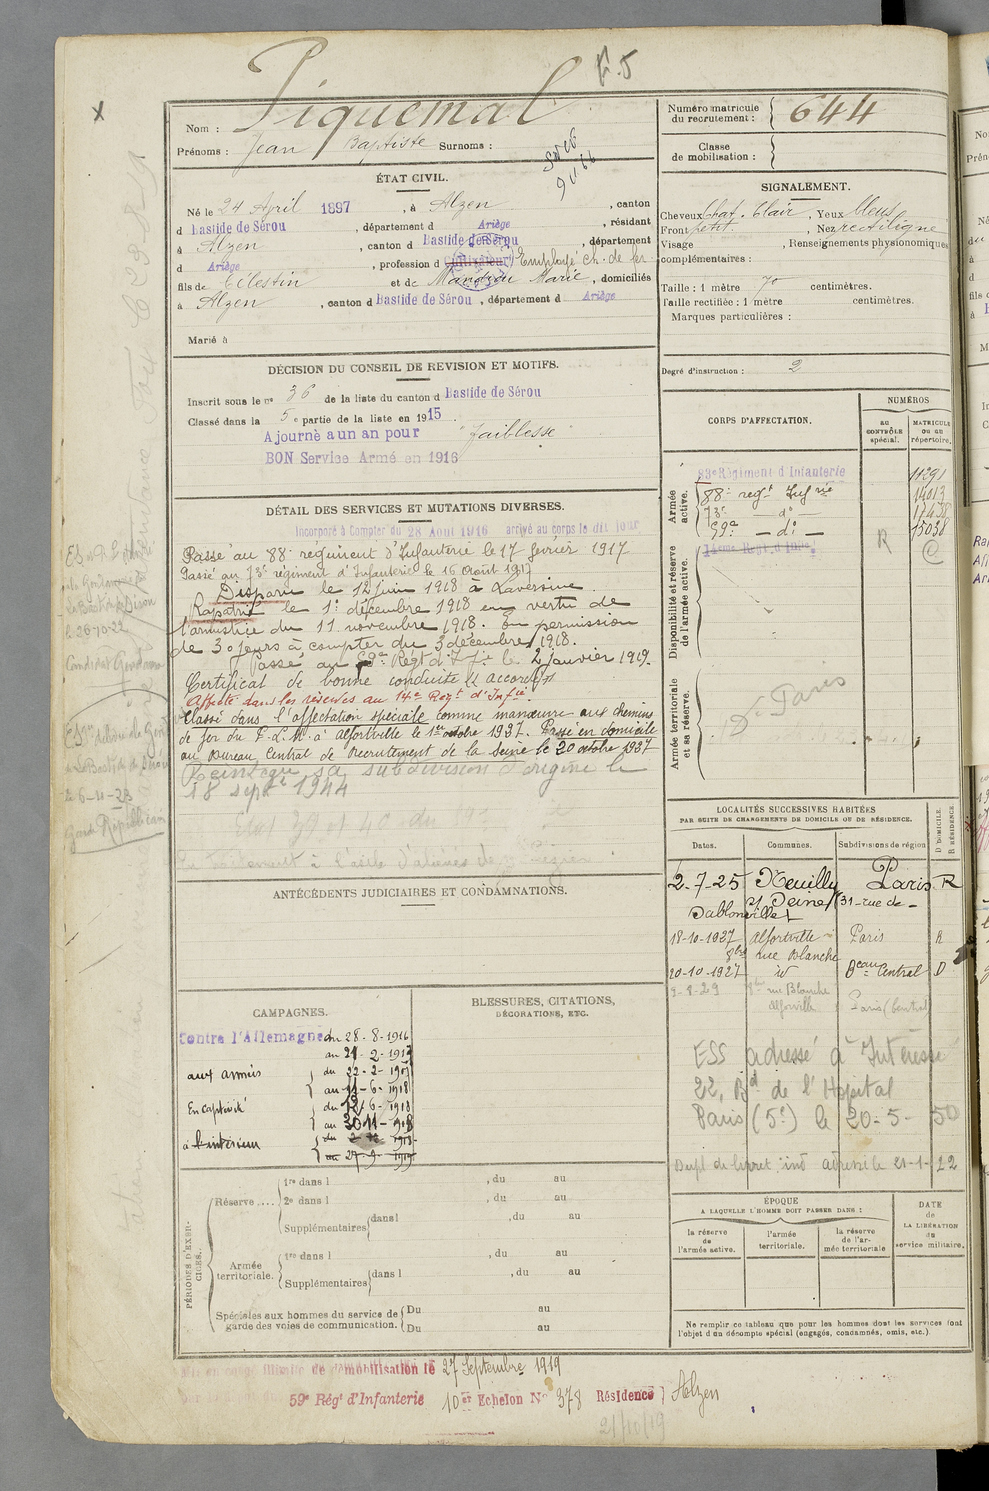 E.5
X
Nom : Piquemal
Prénoms : Jean Baptiste Surnoms :
ÉTAT CIVIL.
Né le 24 Avril 1897, à Alzen, canton
d Bastide de Sérou, département d Ariège, résidant
à Alzen, canton d Bastide de Sérou, département
d Ariège, profession d cultivateur Employé ch. de fer
fils de Célestin et de Marie, domiciliés
à Alzen, canton d Bastide de Sérou, département d Ariège
Marié à
DÉCISION DU CONSEIL DE REVISION ET MOTIFS.
Inscrit sous le nº 36 de la liste du canton d Bastide de Sérou
Classé dans la 5e partie de la liste en 1915.
Ajourné a un an pour "faiblesse"
BON Service Armé en 1916
DÉTAIL DES SERVICES ET MUTATIONS DIVERSES.
Incorporé à Compter du 28 Aout 1916 arrivé au corps le dit jour
Passé au 88e régiment d'Infanterie le 17 février 1917
Passé au 73e régiment d'Infanterie le 16 août 1917
Disparu le 12 juin 1918 à Laversine
Rapatrié le 1er décembre 1918 en vertu de
l'armistice du 11 novembre 1918. En permission
de 30 jours à compter du 3 décembre 1918.
Passé au 59e Régt d'Inf. le 2 janvier 1919.
Certificat de bonne conduite accordé
Affecté dans les réserves au 14e Regt d'Infie
Classé dans l'affectation spéciale comme manœuvre aux chemins
de fer du P.-L.M. à Alfortville le 1er octobre 1927. Passé en domicile
au Bureau Central de Recrutement de la Seine le 20 octobre 1927
Réintégré sa subdivision d'origine le
18 septe 1944
ANTÉCÉDENTS JUDICIAIRES ET CONDAMNATIONS.
CAMPAGNES.
Contre l'Allemagne du 28-8-1916
au 21-2-1917
aux armées du 22-2-1917
au 11-6-1918
En captivité du 12-6-1918
au 30-11-1918
à l'intérieur du 2-12-1918
au 27-9-1919
BLESSURES, CITATIONS,
DÉCORATIONS, ETC.
PÉRIODES D'EXERCICES.
Réserve .... 1re dans l , du au
2e dans l , du au
Supplémentaires dans l , du au
Armée territoriale. 1re dans l , du au
Supplémentaires dans l , du au
Spéciales aux hommes du service de Du au
garde des voies de communication. Du au
Mis en congé illimité de démobilisation le 27 Septembre 1919
59e Régt d'Infanterie 10er Echelon No 378 Résidence Alzen
21/10/19
Numéro matricule
du recrutement : 644
Classe
de mobilisation :
SIGNALEMENT.
Cheveux Chat. Clair, Yeux bleus
Front petit, Nez rectiligne
Visage , Renseignements physionomiques
complémentaires :
Taille : 1 mètre 70 centimètres.
Taille rectifiée : 1 mètre centimètres.
Marques particulières :
Degré d'instruction : 2
CORPS D'AFFECTATION.
NUMÉROS
AU CONTRÔLE spécial.
MATRICULE OU AU répertoire.
Armée active.
83e Régiment d'Infanterie 11291
88e regt Infrie 14013
73e - do - 17438
59e - do - 15038
Disponibilité et réserve de l'armée active.
14eme Regt d'Infie. R
Armée territoriale et sa réserve.
Paris
LOCALITÉS SUCCESSIVES HABITÉES
PAR SUITE DE CHANGEMENTS DE DOMICILE OU DE RÉSIDENCE.
Dates. Communes. Subdivisions de région D DOMICILE. R RÉSIDENCE.
2-7-25 Neuilly Paris R
s/ Seine (31 rue de
Sablonville)
18-10-1927 Alfortville Paris R
8bis rue Blanche
20-10-1927 id Beau Central D
9-8-29 8bis rue Blanche
Alfortville Paris (Central)
ESS adressé à Intéressé
22, Bd de l'Hopital
Paris (5e) le 20-5-50
Dupl. de livret ind adressé le 21-1-22
ÉPOQUE
A LAQUELLE L'HOMME DOIT PASSER DANS :
la réserve de l'armée active.
l'armée territoriale.
la réserve de l'armée territoriale
DATE de LA LIBÉRATION du service militaire.
Ne remplir ce tableau que pour les hommes dont les services font
l'objet d'un décompte spécial (engagés, condamnés, omis, etc.)